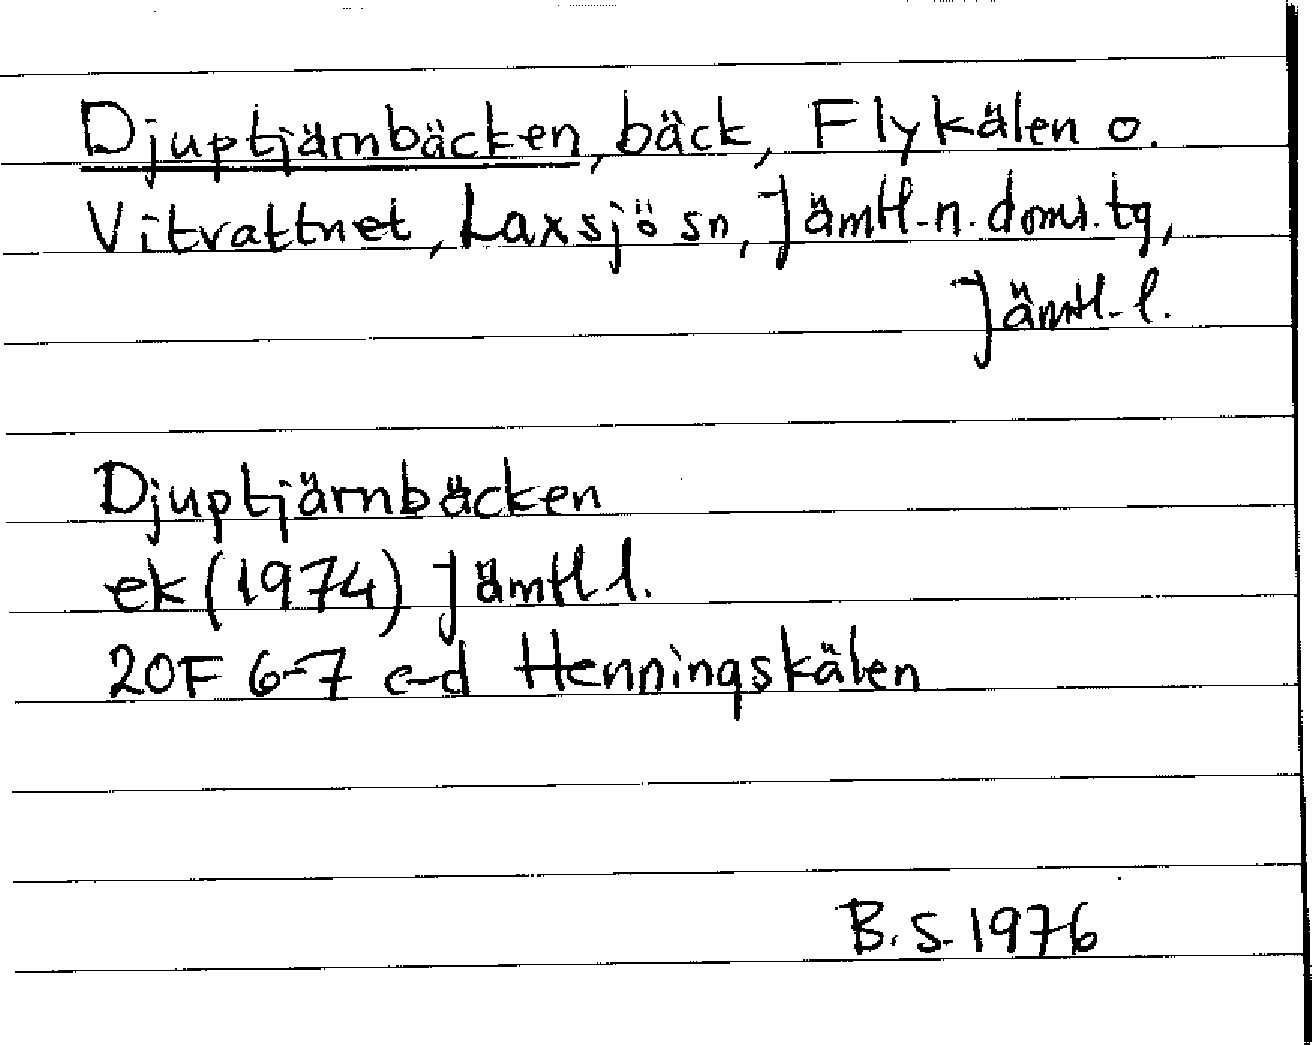 Djuptjärnbäcken, bäck, Flykälen o.
Vitvattnet, Laxsjö sn, Jämtl.n.doms.tg,
Jämtl.l.
Djuptjärnbäcken
ek (1974) Jämtl l.
20F 6-7 c-d Henningskälen
B.S. 1976